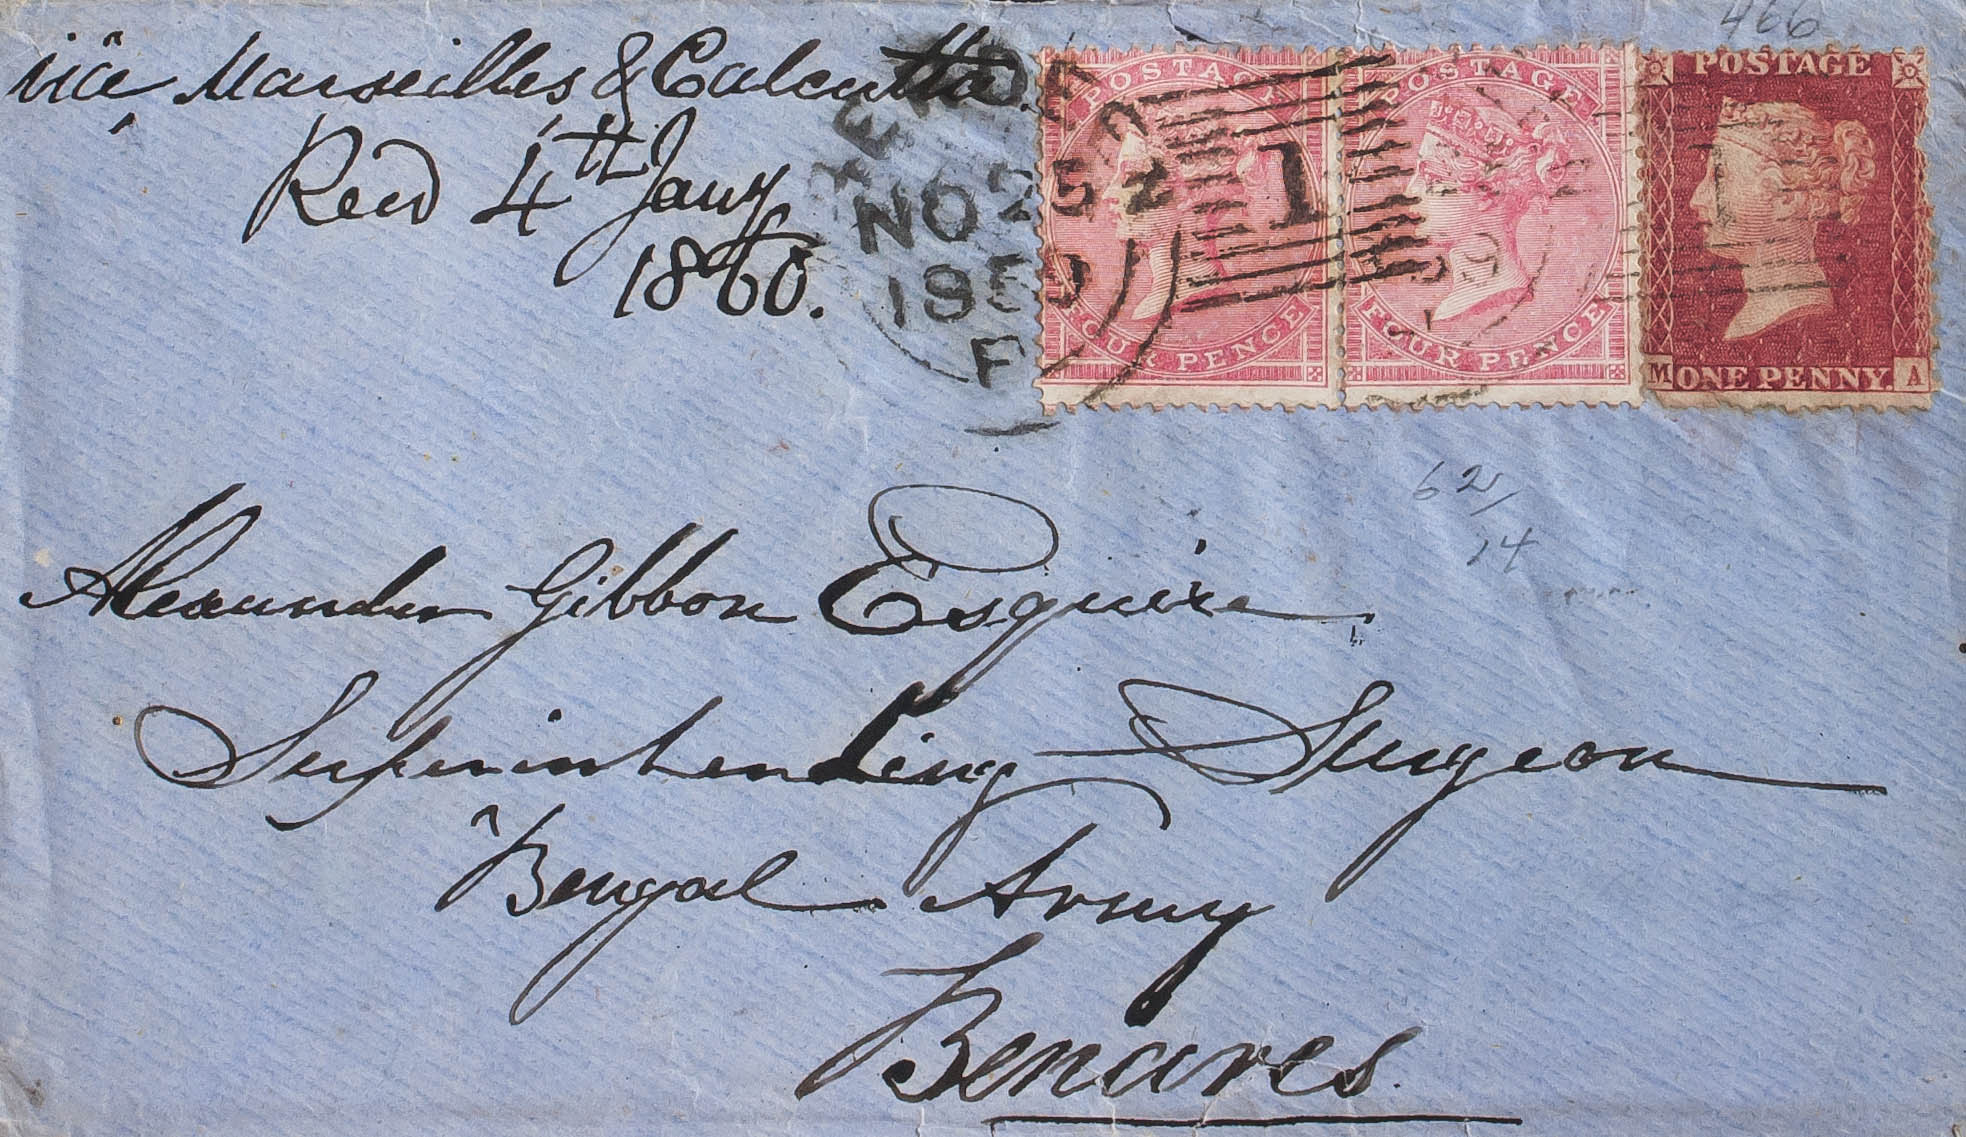 466
viâ Marseilles & Calcutta.
Recd 4th Jany
1860.
POSTAGE
FOUR PENCE
POSTAGE
FOUR PENCE
POSTAGE
M ONE PENNY. A
NO 25
1859
1
62/
14
Alexander Gibbon Esquire
Superintending Surgeon
Bengal Army
Benares.